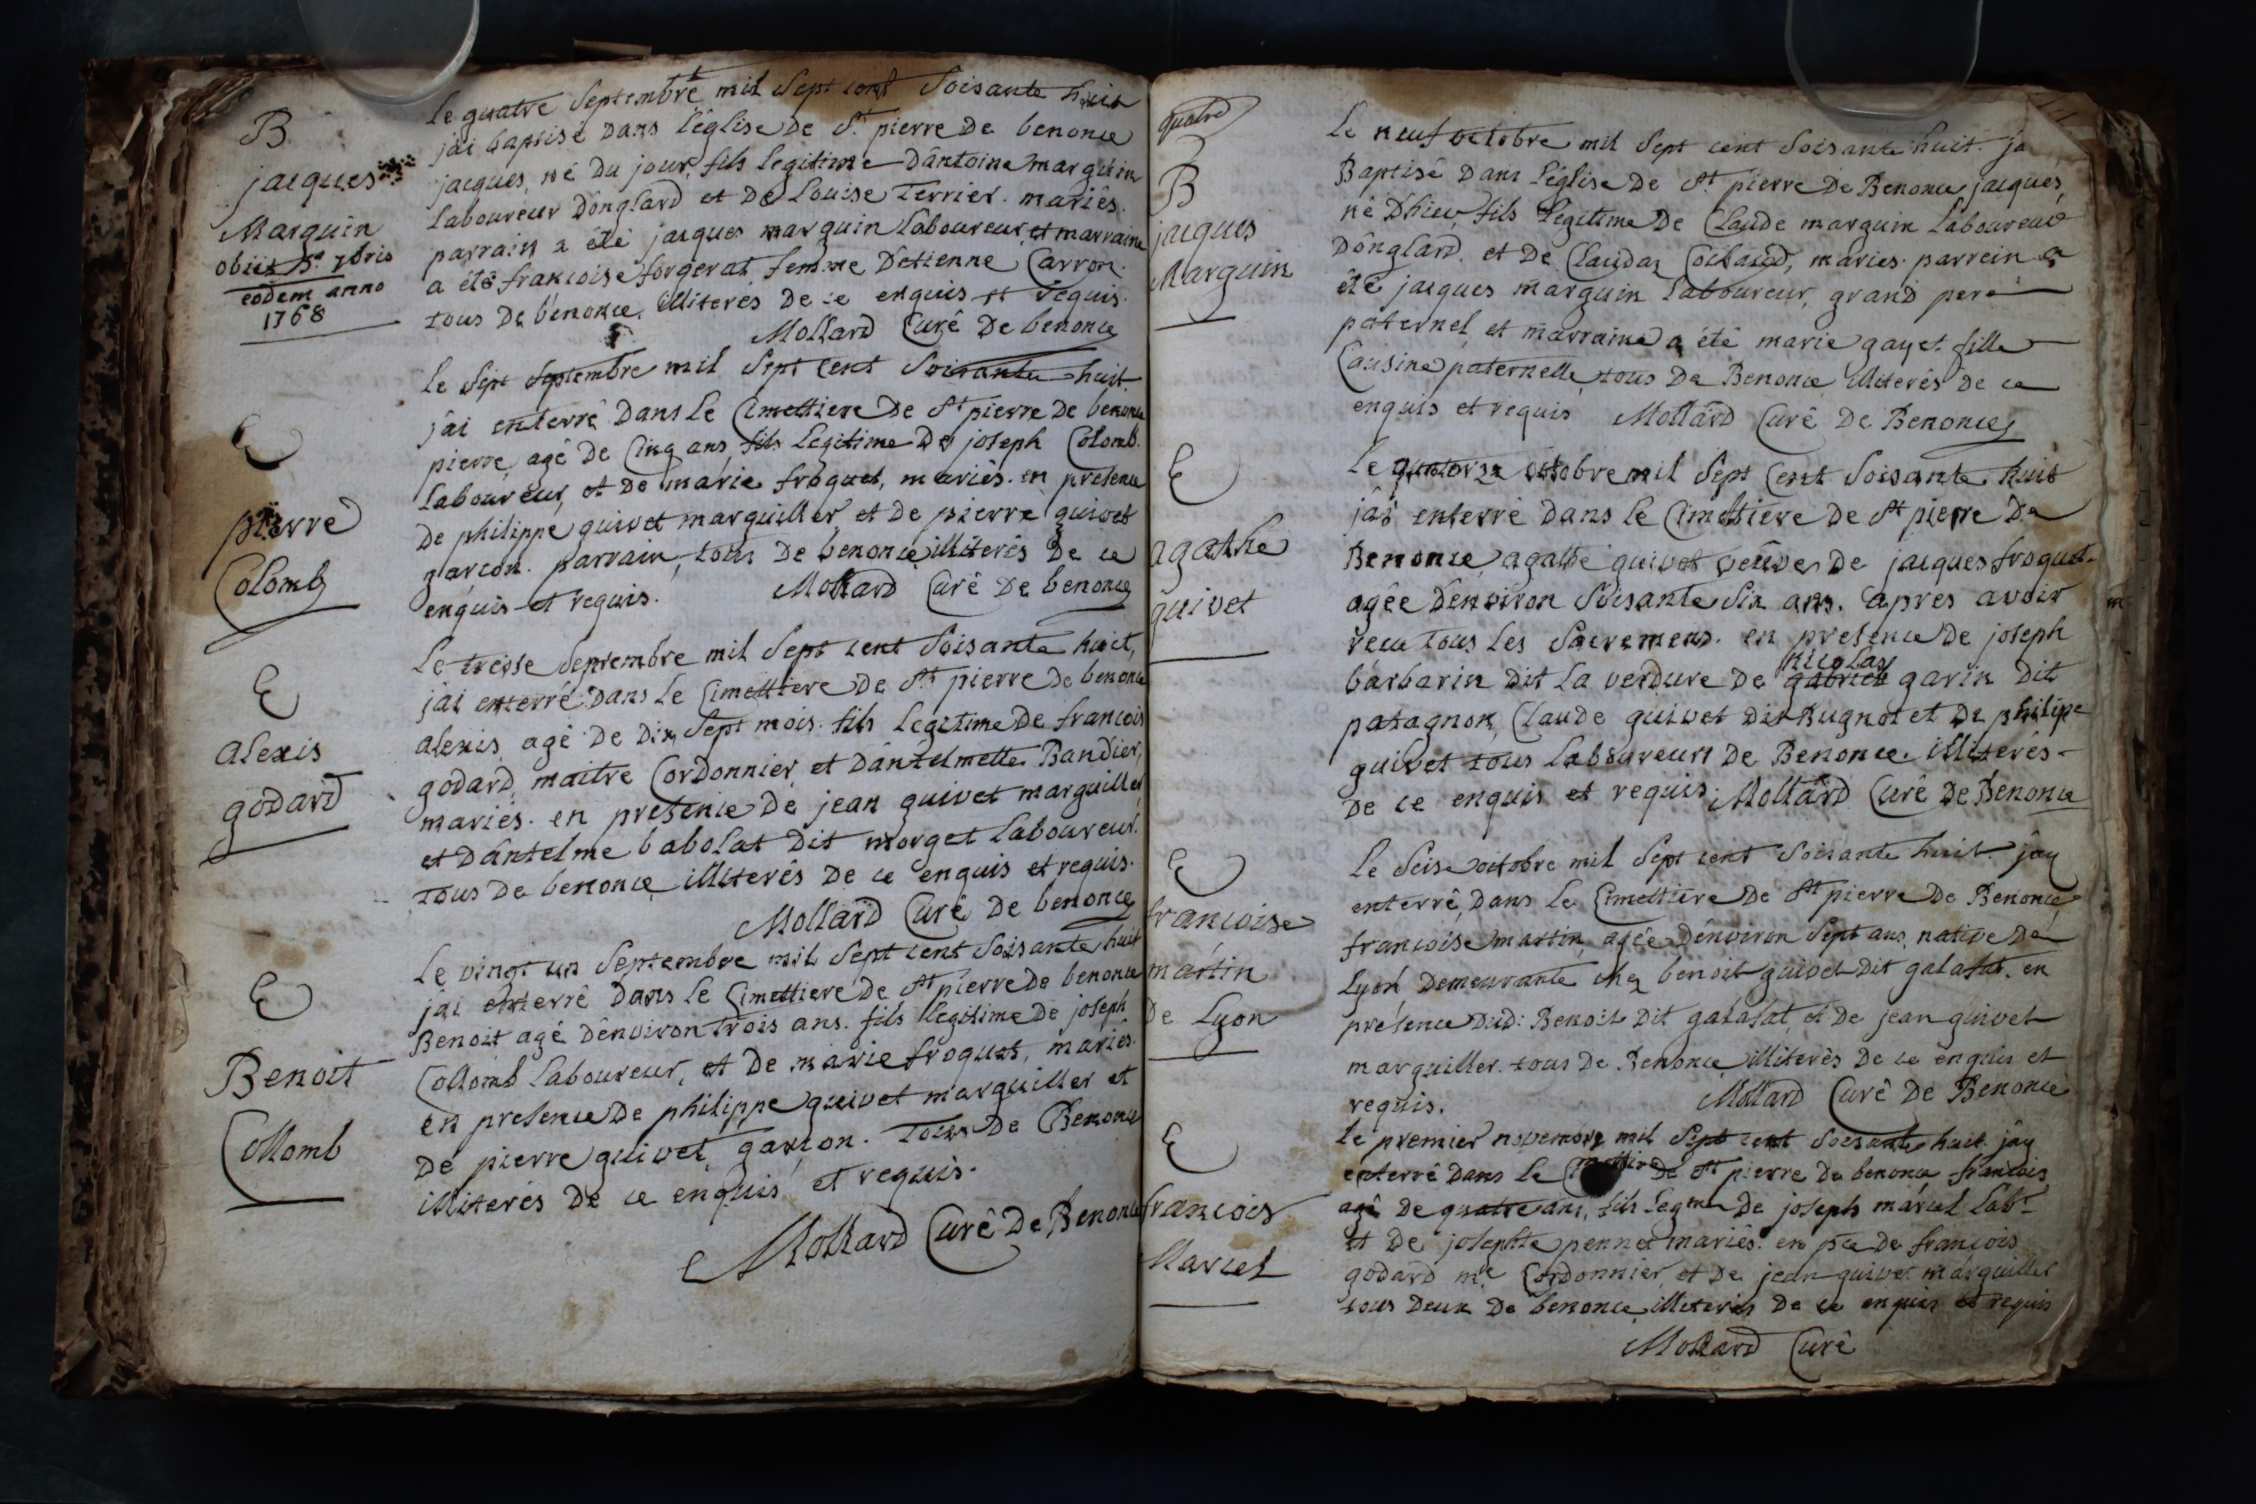 B
jacques
Marguin
obiit 5a 7bris
eodem anno
1768
Le quatre Septembre mil Sept cent Soisante huit
j'ai baptisé dans l'église de St pierre de benonce
jacques, né du jour, fils legitime d'antoine marguin
Laboureur d'onglard et de Louise Terrier. mariés.
parrain a été jacques marguin Laboureur, et marraine
a été francoise forgerat femme d'etienne Carron.
tous de benonce, illiterés de ce enquis et requis.
Mollard Curé de benonce
E
pierre
Colomb
Le Sept Septembre mil Sept Cent Soisante huit
j'ai enterré dans Le Cimettiere de St pierre de benonce
pierre, agé de Cinq ans, fils Legitime de joseph Colomb.
Laboureur, et de marie froquet, mariés. en presence
de philippe quivet marguiller, et de pierre quivet
garcon. parrain, tous de benonce illiterés de ce
enquis et requis. Mollard Curé de benonce
E
alexis
godard
Le treise Septembre mil Sept cent Soisante huit,
j'ai enterré dans Le Cimettiere de St pierre de benonce
alexis agé de dix Sept mois. fils legitime de francois
godard, maitre Cordonnier, et d'antelmette Bandier,
mariés. en presence de jean quivet marguiller
et d'antelme babolat dit morget Laboureur.
tous de benonce illiterés de ce enquis et requis.
Mollard Curé de benonce
E
Benoit
Collomb
Le vingt un Septembre mil Sept cent Soisante huit
jai enterré dans Le Cimettiere de St pierre de benonce
Benoit agé d'environ trois ans. fils Legitime de joseph
Collomb Laboureur, et de marie froquet, mariés.
en presence de philippe quivet marguiller et
de pierre quivet, garcon. Tous de Benonce
illiterés de ce enquis et requis.
Mollard Curé de Benonce
quatre
B
jacques
Marguin
Le neuf octobre mil Sept cent Soisante huit. ja
Baptisé dans l'église de St pierre de Benonce jacques,
né d'hier, fils Legitime de Claude marguin Laboureur
d'onglard. et de Claudaz Cochaud, maries. parrein a
été jacques marguin Laboureur, grand pere
paternel, et marraine a été marie gayet fille
Causine paternelle, tous de Benonce illiterés de ce
enquis et requis Mollard Curé de Benonce
E
agathe
quivet
Le quatorze octobre mil Sept Cent Soisante huit
jai enterré dans le Cimettiere de St pierre de
Benonce agathe quivet veuve de jacques froquet.
agée d'environ Soisante Six ans. apres avoir
recu tous les Sacremens. en presence de joseph
nicolas
barbarin dit La verdure de gabriel garin dit
patagnon, Claude quivet dit Bugnot et de philipe
quivet tous Laboureurs de Benonce. illiterés
de ce enquis et requis. Mollard Curé de Benonce
E
francoise
martin
de Lyon
Le Seise octobre mil Sept cent Soisante huit. jay
enterré, dans Le Cimettiere de St pierre de Benonce
francoise martin, agée d'environ Sept ans, native de
Lyon demeurante chez benoit quivet dit galafat. en
présence dud: Benoit dit galafat, et de jean quivet
marguiller. tous de Benonce illiterés de ce enquis et
requis. Mollard Curé de Benonce
E
francois
Marcel
Le premier novembre mil Sept cent Soisante huit jay
enterré dans Le de St pierre de benonce francois
agé de quatre ans, fils Legme de joseph marcel Labr
et de josephte pennet mariés. en pce de francois
godard me Cordonnier, et de jean quivet marguiller
tous deux de benonce, illiterés de ce enquis et requis
Mollard Curé